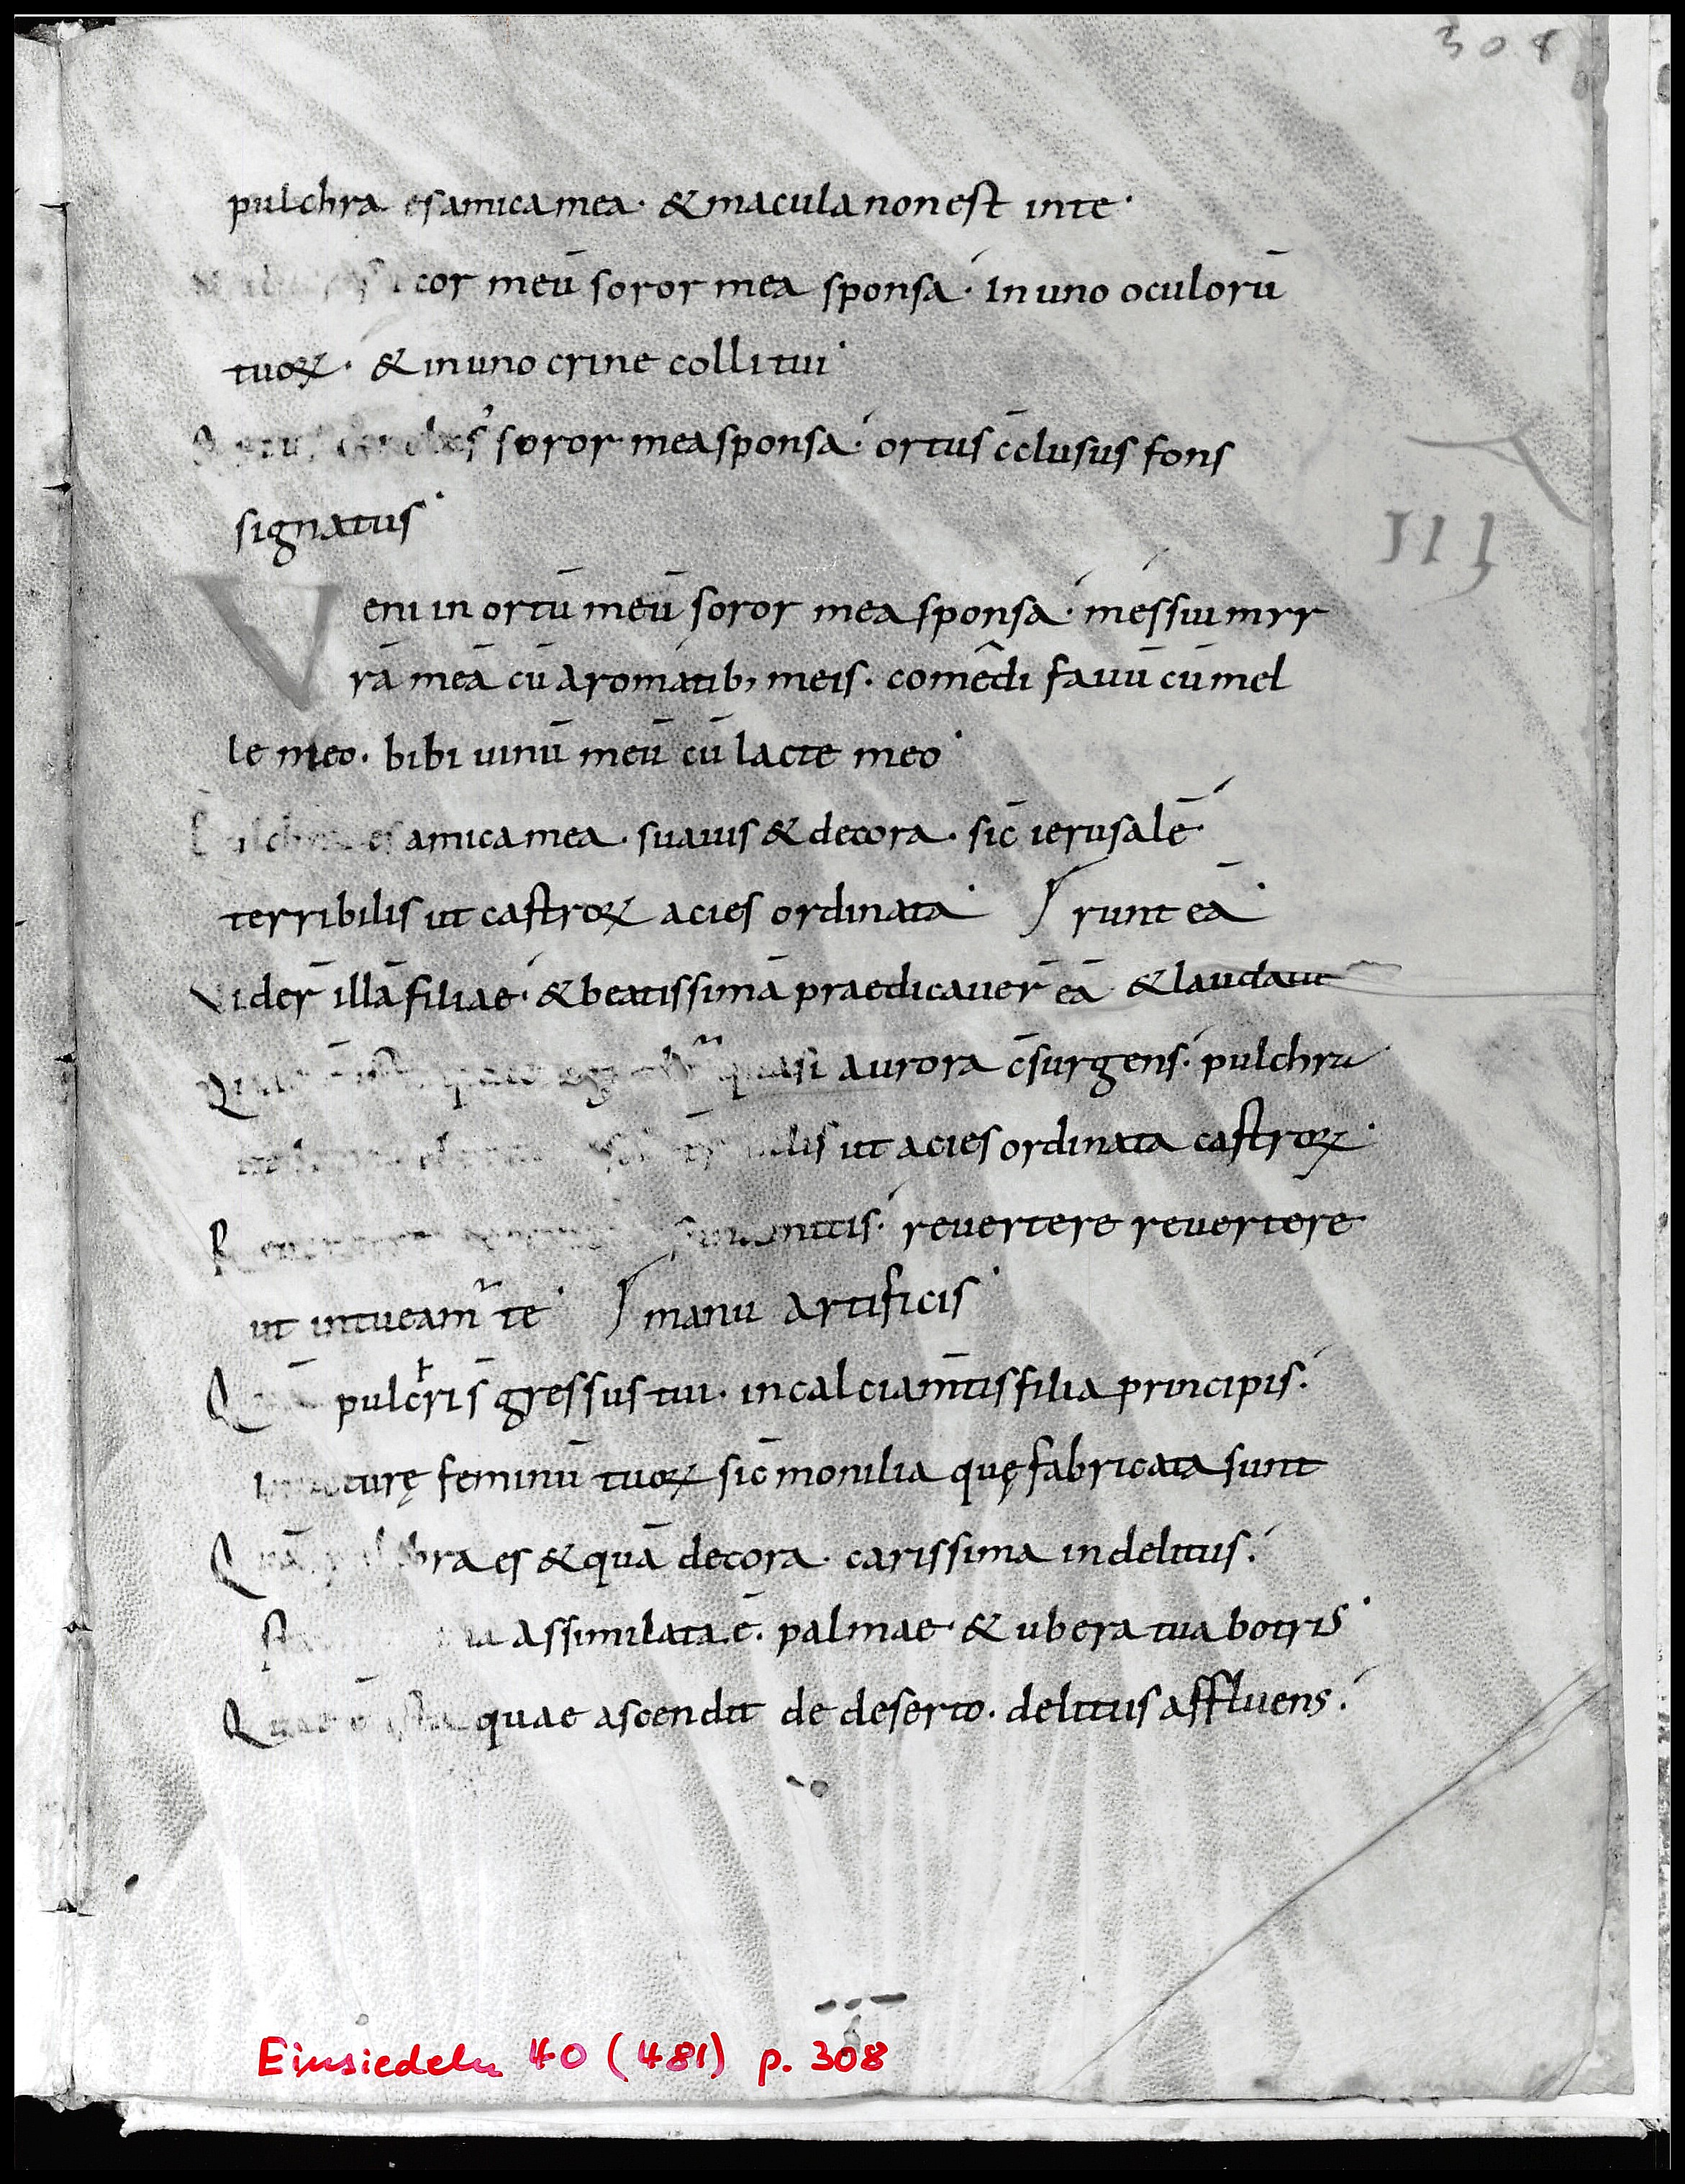 308
pulchra es amica mea · & macula non est in te ·
cor meū soror mea sponsa · In uno oculorū
tuoꝝ · & in uno crine colli tui ·
soror mea sponsa · ortus c̄clusus fons
signatus ·
III
Veni in ortū meū soror mea sponsa · messui mir
rā meā cū aromatib; meis · comêdi fauū cū mel
le meo · bibi uinū meū cū lacte meo ·
Pulchra es amica mea · suauis & decora · sic̄ ierusalē
terribilis ut castroꝝ acies ordinata · runt eā ·
Vider̄ illā filiae · & beatissimā praedicauer̄ eā & laudaue
quasi aurora c̄surgens · pulchra
ut acies ordinata castroꝝ ·
reuertere reuertere
ut intueam̃ te · manu artificis ·
pulcris̄ gressus tui · in calciam̄tis filia principis ·
feminū tuoꝝ sic̄ monilia quę fabricata sunt
Quā pulchra es & quā decora · carissima in delitiis ·
assimilata ē · palmae · & ubera tua botris ·
Quae ē ista quae ascendit de deserto · delitiis affluens ·
Einsiedeln 40 (481) p. 308